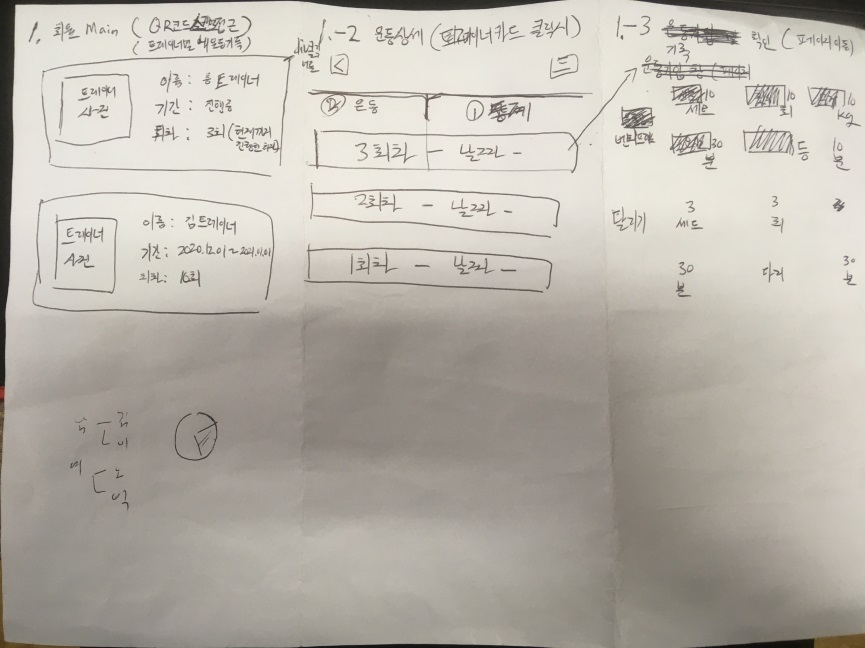 1. 회원 Main ( QR코드 접근 )
( 트레이너로 운동기록 )
트레이너
사진
이름 : 홍트레이너
기간 : 진행중
회차 : 3회 (현재까지
진행한 회차)
트레이너
사진
이름 : 김트레이너
기간 : 2020.12.01 ~ 2021.01.01
회차 : 16회
1.-2 운동상세 (트레이너카드 클릭시)
<
② 운동
① 통계
3회차 - 날짜 -
2회차 - 날짜 -
1회차 - 날짜 -
1.-3
기록
확인 ( 페이지이동 )
10
세트
10
회
10
kg
30
분
등
10
분
달리기
3
세트
3
회
30
분
다리
30
분